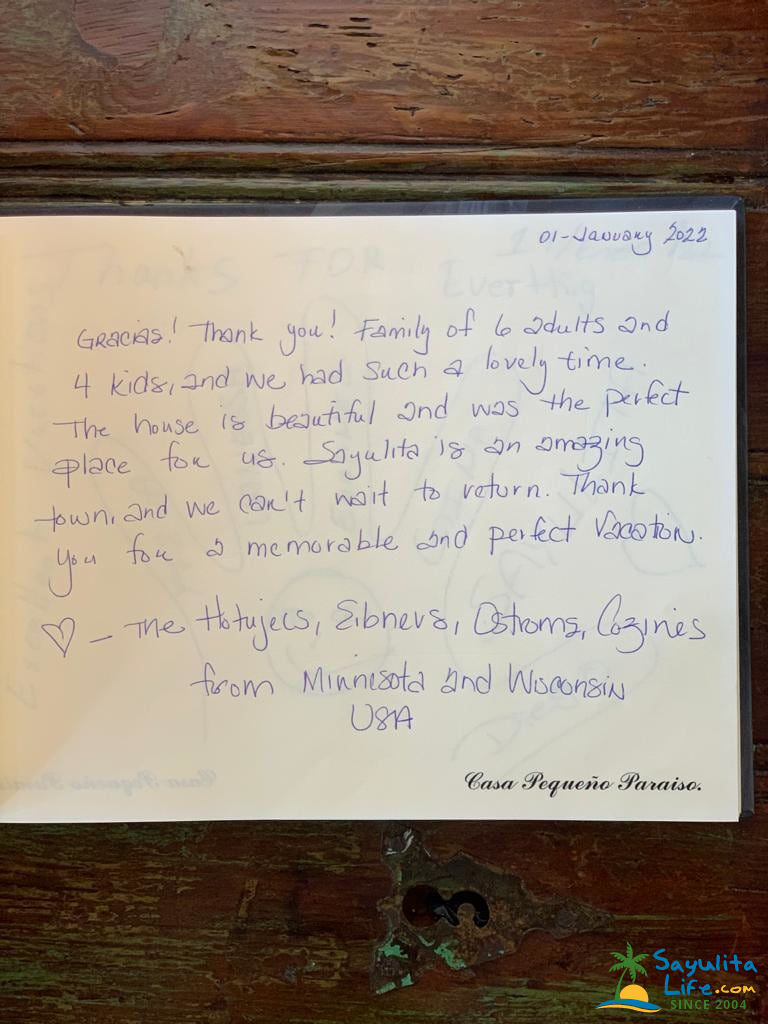 01-January 2022
Gracias! Thank you! Family of 6 adults and
4 kids, and we had such a lovely time.
The house is beautiful and was the perfect
place for us. Sayulita is an amazing
town, and we can't wait to return. Thank
you for a memorable and perfect vacation.
♡ - The Hotujecs, Eibners, Ostroms, Cozines
from Minnesota and Wisconsin
USA
Casa Pequeño Paraiso.
Sayulita
Life.com
SINCE 2004